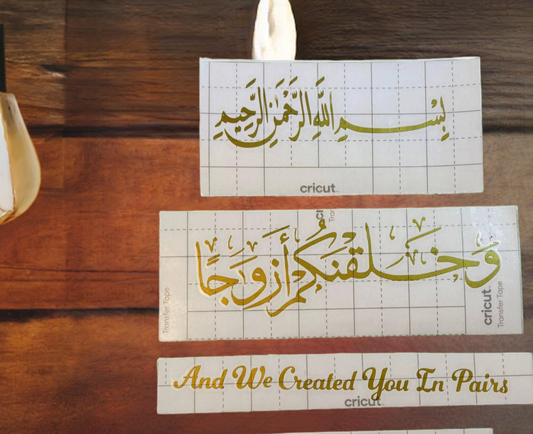 بِسْمِ اللَّهِ الرَّحْمَٰنِ الرَّحِيمِ
cricut
cricut
Transfer Tape
وَخَلَقْنَكُمْ أَزْوَجًا
Transfer Tape
And We Created You In Pairs
cricut